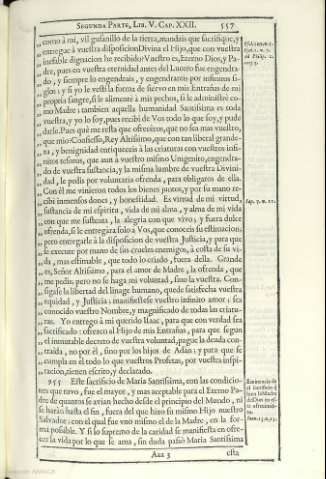 SEGUNDA PARTE, LIB. V. CAP. XXII. 557
como à mi, vil gusanillo de la tierra, mandais que sacrifique, y
entregue à vuestra disposicion Divina el Hijo, que con vuestra
inefable dignacion he recibido. Vuestro es, Eterno Dios, y Pa-
dre, pues en vuestra eternidad antes del Lucero fue engendra-
do, y siempre lo engendrais, y engendrareis por infinitos si-
glos: y si yo le vestì la forma de siervo en mis Entrañas de mi
propria sangre, si le alimentè à mis pechos, si le administrè co-
mo Madre; tambien aquella humanidad Santissima es toda
vuestra, y yo lo soy, pues recibì de Vos todo lo que soy, y pude
darle. Pues què me resta que ofreceros, que no sea mas vuestro,
que mio? Confiesso, Rey Altissimo, que con tan liberal grande-
za, y benignidad enriqueceis à las criaturas con vuestros infi-
nitos tesoros, que aun à vuestro mismo Unigenito, engendra-
do de vuestra sustancia, y la misma lumbre de vuestra Divini-
dad, le pedis por voluntaria ofrenda, para obligaros de ella.
Con èl me vinieron todos los bienes juntos, y por su mano re-
cibì inmensos dones, y honestidad. Es virtud de mi virtud,
sustancia de mi espiritu, vida de mi alma, y alma de mi vida
con que me sustenta, la alegria con que vivo; y fuera dulce
ofrenda, si le entregàra solo à Vos, que conoceis su estimacion;
pero entregarle à la disposicion de vuestra Justicia, y para que
se execute por mano de sus crueles enemigos, à costa de su vi-
da, mas estimable, que todo lo criado, fuera della. Grande
es, Señor Altissimo, para el amor de Madre, la ofrenda, que
me pedis: pero no se haga mi voluntad, sino la vuestra. Con-
sigase la libertad del linage humano, quede satisfecha vuestra
equidad, y Justicia: manifiestese vuestro infinito amor: sea
conocido vuestro Nombre, y magnificado de todas las criatu-
ras. Yo entrego à mi querido Isaac, para que con verdad sea
sacrificado: ofrezco el Hijo de mis Entrañas, para que segun
el inmutable decreto de vuestra voluntad, pague la deuda con-
traida, no por èl, sino por los hijos de Adan; y para que se
cumpla en èl todo lo que vuestros Profetas, por vuestra inspi-
racion, tienen escrito, y declarado.
955 Este sacrificio de Maria Santissima, con las condicio-
nes que tuvo, fue el mayor, y mas aceptable para el Eterno Pa-
dre de quantos se avian hecho desde el principio del Mundo, ni
se haràn hasta el fin, fuera del que hizo su mismo Hijo nuestro
Salvador: con el qual fue uno mismo el de la Madre, en la for-
ma possible. Y si lo supremo de la caridad se manifiesta en ofre-
cer la vida por lo que se ama, sin duda passò Maria Santissima
Aaa 3 esta
Sap. 7. v. 11.